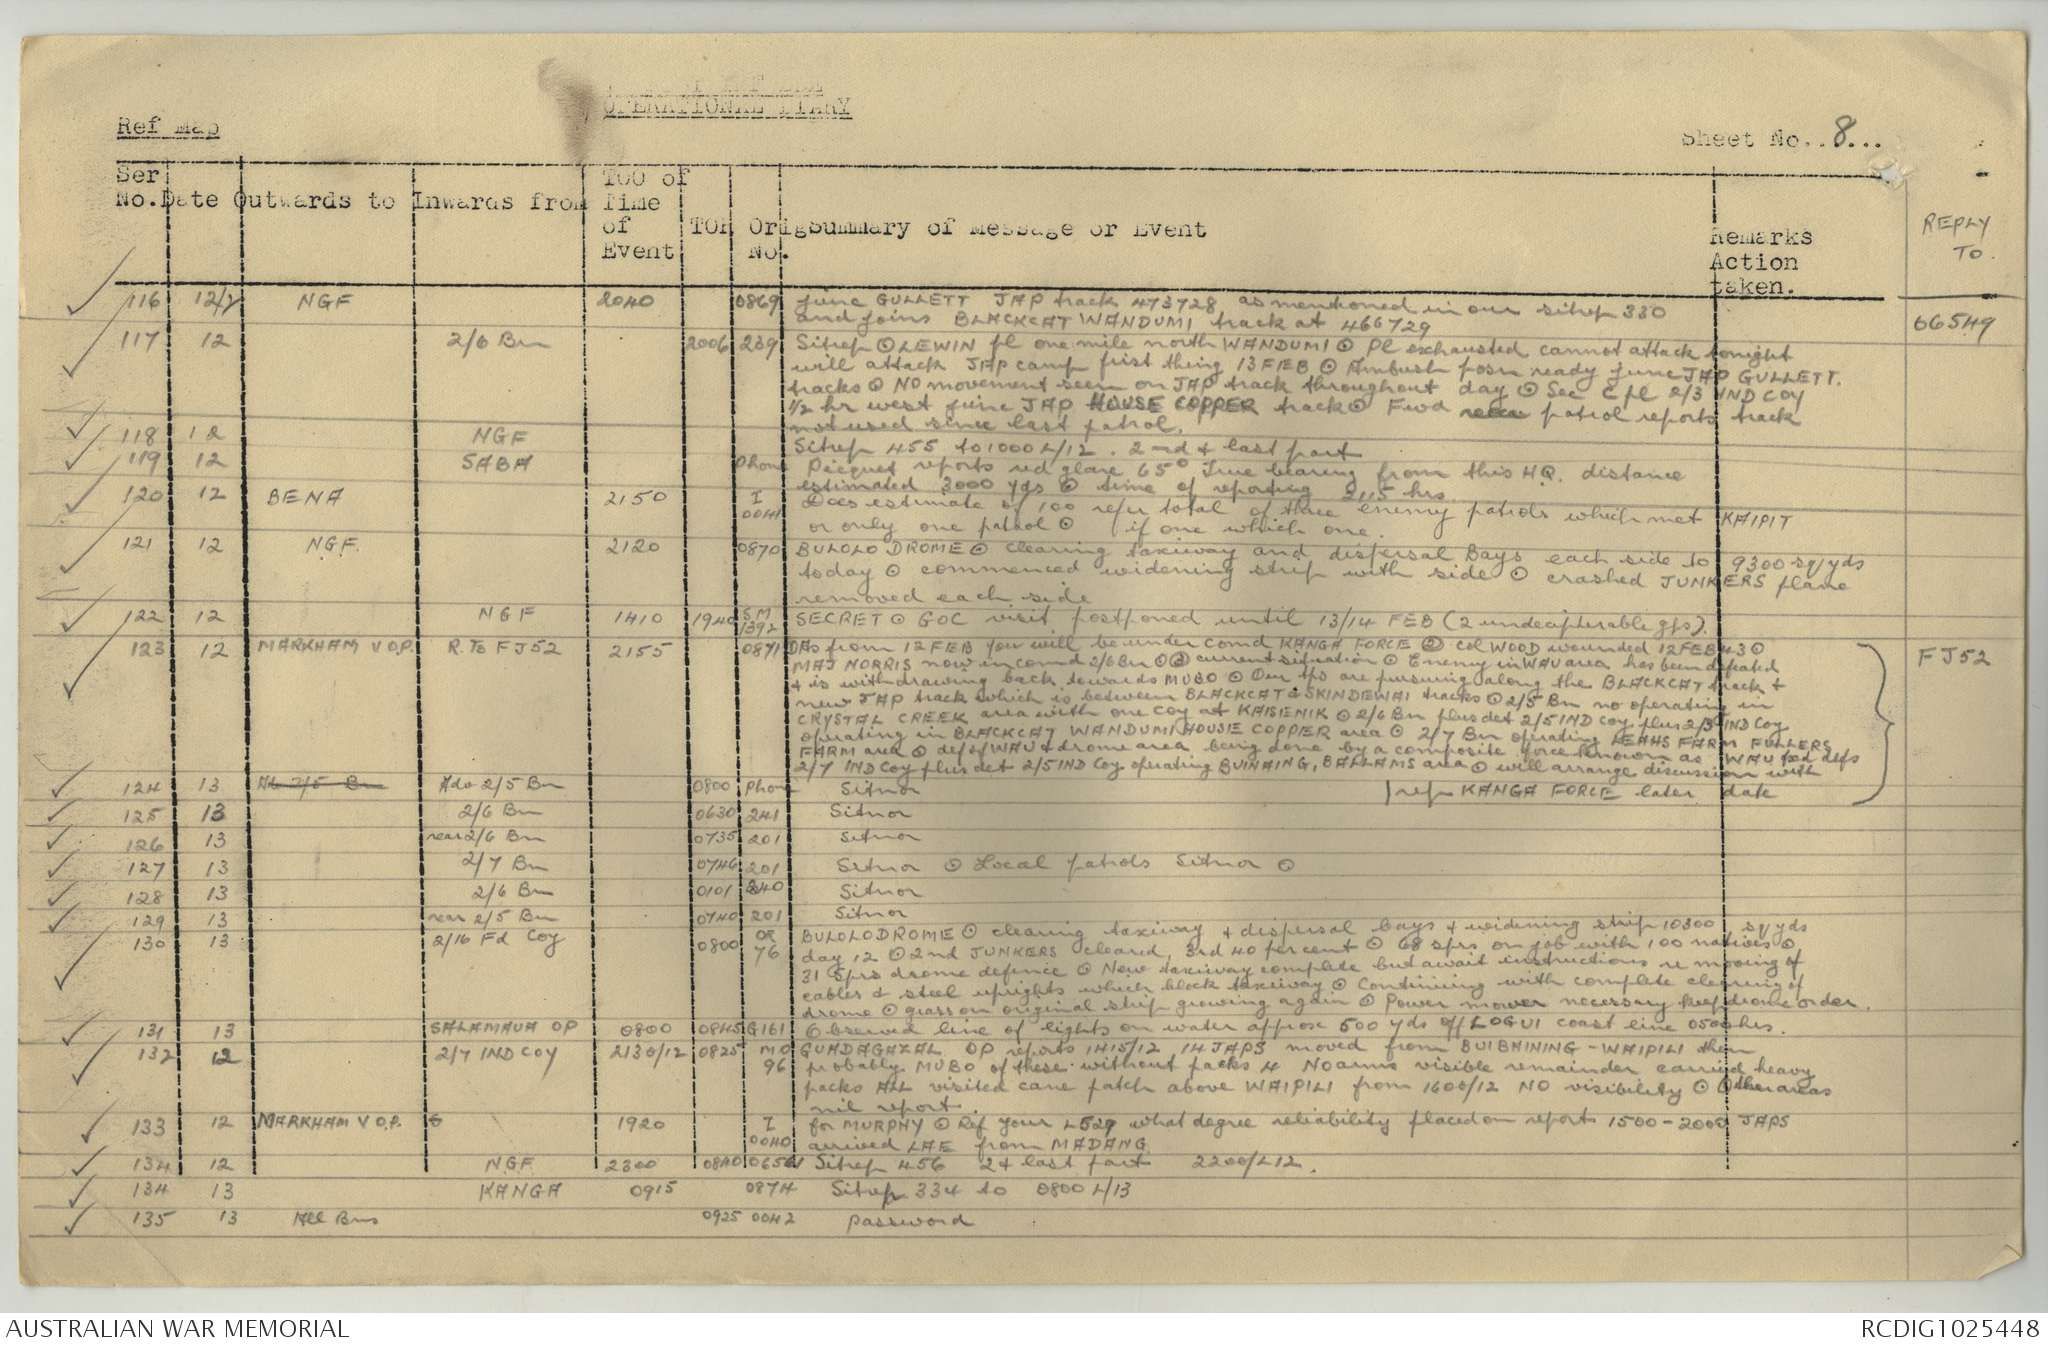 OPERATIONAL DIARY
Ref Map
Sheet No. 8
Ser No. Date Outwards to Inwards from TOO of Time of Event TOR Orig No. Summary of Message or Event Remarks Action taken. REPLY TO.
116 12/2 NGF 2040 0869 junc GULLETT JAP track 473728 as mentioned in our sitrep 330
and joins BLACKCAT WANDUMI track at 466729
O6549
117 12 2/6 Bn 2006 239 Sitrep ⊙ LEWIN pl one mile north WANDUMI ⊙ Pl exhausted cannot attack tonight
will attack JAP camp first thing 13 FEB ⊙ Ambush posn ready junc JAP GULLETT.
tracks ⊙ NO movement seen on JAP track throughout day ⊙ Sec C pl 2/3 IND COY
1/2 hr west junc JAP HOUSE COPPER track ⊙ Fwd patrol reports track
not used since last patrol.
118 12 NGF Sitrep 455 to 1000L/12. 2nd & last part
119 12 SABA Phone Picquet reports red glare 65° True bearing from this HQ. distance
estimated 3000 yds ⊙ time of reporting 2115 hrs.
120 12 BENA 2150 I 0041 Does estimate of 100 refer total of three enemy patrols which met KAIPIT
or only one patrol ⊙ if one which one.
121 12 NGF. 2120 0870 BULOLO DROME ⊙ clearing taxiway and dispersal Bays each side to 9300 sq yds
today ⊙ commenced widening strip with side ⊙ crashed JUNKERS plane
removed each side
122 12 NGF 1410 1940 S.M 1392 SECRET ⊙ GOC visit postponed until 13/14 FEB (2 undecipherable gps).
123 12 MARKHAM V OP. R. To FJ52 2155 0871 As from 12 FEB you will be under comd KANGA FORCE ⊙ Col WOOD wounded 12 FEB 43 ⊙
MAJ NORRIS now in comd 2/6 Bn ⊙ current situation ⊙ Enemy in WAU area has been defeated
& is withdrawing back towards MUBO ⊙ Our tps are pursuing along the BLACKCAT track &
new JAP track which is between BLACKCAT & SKINDEWAI tracks ⊙ 2/5 Bn no operating in
CRYSTAL CREEK area with one coy at KAISENIK ⊙ 2/6 Bn plus det 2/5 IND Coy plus 2/3 IND Coy
operating in BLACKCAT WANDUMI HOUSE COPPER area ⊙ 2/7 Bn operating LEAHS FARM FULLERS
FARM area ⊙ def of WAU & drome area being done by a composite force known as WAU fxd defs
2/7 IND Coy plus det 2/5 IND Coy operating BUINAING, BALLAMS area ⊙ will arrange discussion with
rep KANGA FORCE later date
FJ52
124 13 Adv 2/5 Bn Adv 2/5 Bn 0800 Phone Sitnor
125 13 2/6 Bn 0630 241 Sitnor
126 13 rear 2/6 Bn 0735 201 Sitnor
127 13 2/7 Bn 0746 201 Sitnor ⊙ Local patrols Sitnor ⊙
128 13 2/6 Bn 0101 240 Sitnor
129 13 rear 2/5 Bn 0740 201 Sitnor
130 13 2/16 Fd Coy 0800 OR 76 BULOLO DROME ⊙ clearing taxiway & dispersal bays & widening strip 10300 sq yds
day 12 ⊙ 2nd JUNKERS cleared, 3rd 40 per cent ⊙ 68 sprs on job with 100 natives ⊙
31 Sprs drome defence ⊙ New taxiway complete but await instructions re moving of
cables & steel uprights which block taxiway ⊙ Continuing with complete clearing of
drome ⊙ grass on original strip growing again ⊙ Power mower necessary keep drome order.
131 13 SALAMAUA OP 0800 0845 G161 Observed line of lights on water approx 500 yds off LOGUI coast line 0500 hrs.
132 12 2/7 IND COY 2130/12 0825 MO 96 GUADAGAZAL OP reports 1415/12 14 JAPS moved from BUIBAINING - WAIPILI then
probably MUBO of these without packs 4 No arms visible remainder carried heavy
packs ALL visited cane patch above WAIPILI from 1600/12 NO visibility ⊙ Other areas
nil report.
133 12 MARKHAM V OP. 1920 I 0040 for MURPHY ⊙ Ref your L529 what degree reliability placed on report 1500-2000 JAPS
arrived LAE from MADANG
134 12 NGF 2300 0840 Sitrep 456 2 & last part 2200/L12.
134 13 KANGA 0915 0874 Sitrep 334 to 0800 L/13
135 13 All Bns 0925 0042 password
AUSTRALIAN WAR MEMORIAL
RCDIG1025448